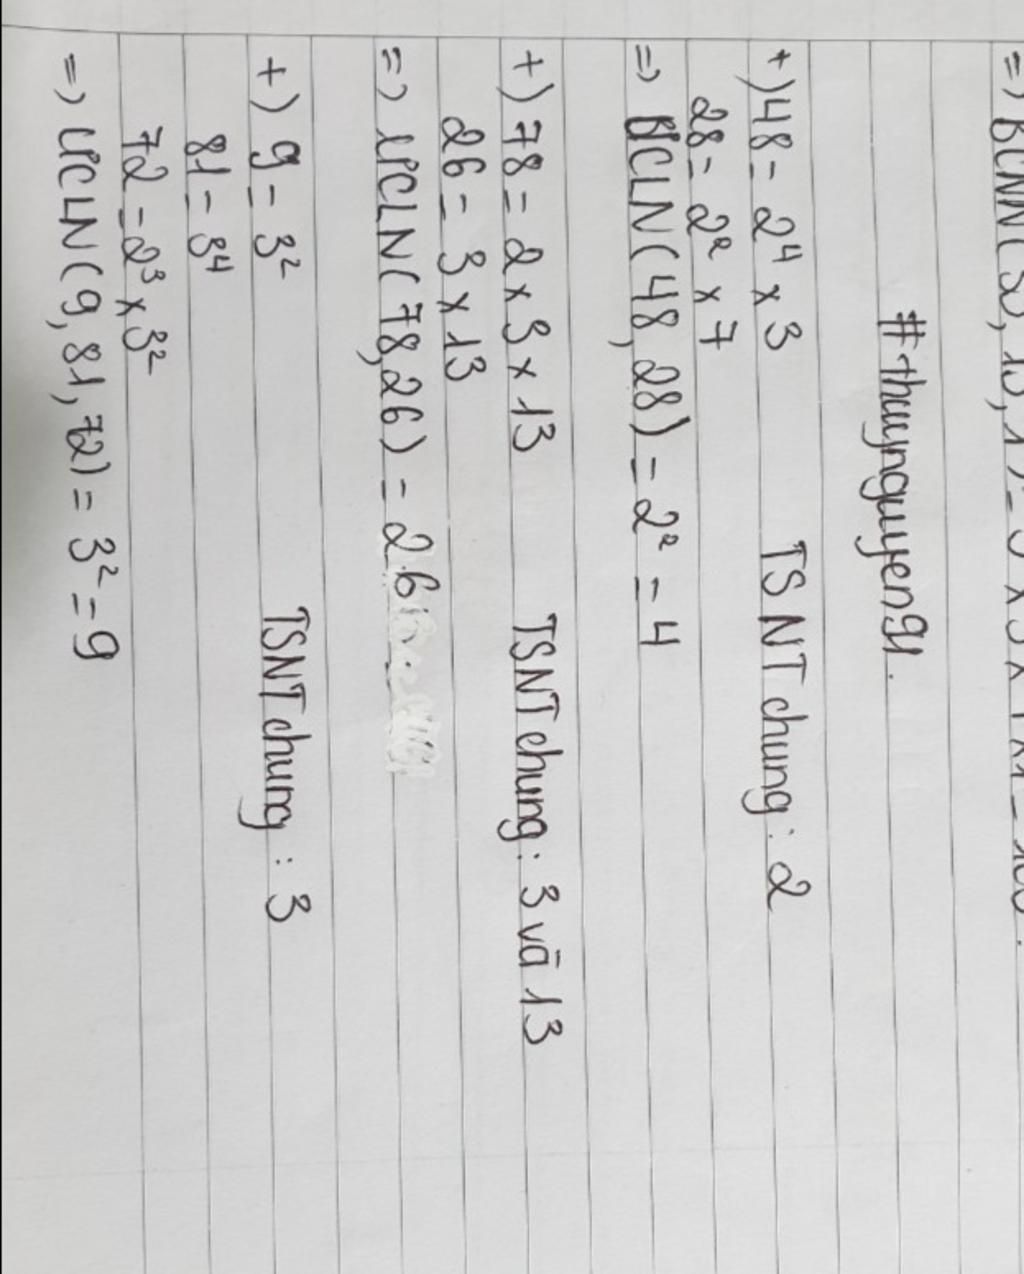 #thuynguyen91.
+) 48 = 2⁴ x 3 TSNT chung: 2
28 = 2² x 7
=> ƯCLN(48, 28) = 2² = 4
+) 78 = 2 x 3 x 13 TSNT chung: 3 và 13
26 = 3 x 13
=> ƯCLN(78, 26) = 26
+) 9 = 3² TSNT chung: 3
81 = 3⁴
72 = 2³ x 3²
=> ƯCLN(9, 81, 72) = 3² = 9